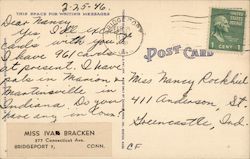 2-25-46.
THIS SPACE FOR WRITING MESSAGES
Dear Nancy
Yes, I'll exchange
cards with you.
I have 961 cards
at present. I have
pals in Marion &
Martinsville in
Indiana. Do you
have any in
MISS IVA BRACKEN
577 Connecticut Ave.
BRIDGEPORT 7, CONN.
BRIDGEPORT
POST CARD
1 CENT 1
Miss Nancy Rockhill
411 Anderson, St
Greencastle, Ind.
CF